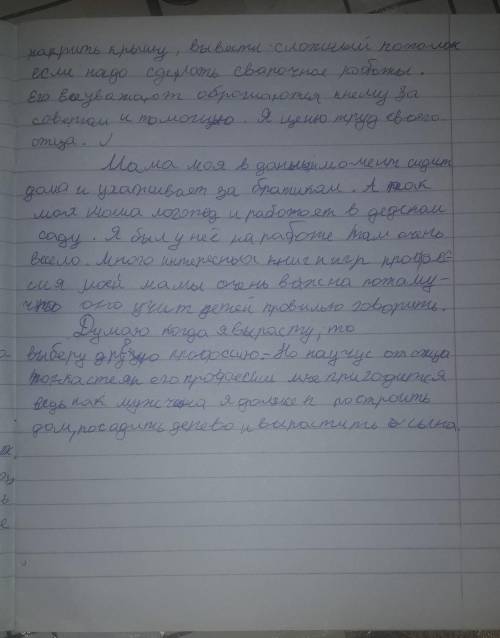 накрыть крышу, вывести сложный потолок
если надо сделать сварочные работы.
Его все уважают обращаются к нему за
советом и помощью. Я ценю труд своего
отца.
Мама моя в даный момент сидит
дома и ухаживает за братиком. А так
моя мама логопед и работает в детском
саду. Я был у неё на работе там очень
весело. Много интересных книг и игр профе-
сия моей мамы очень важна потому-
что она учит детей провильно говорить.
Думаю когда я вырасту, то
выберу другую професию. Но научус от отца
его професии мне пригодится
ведь как мужчина я должен построить
дом, посадить дерево, вырастить сына.